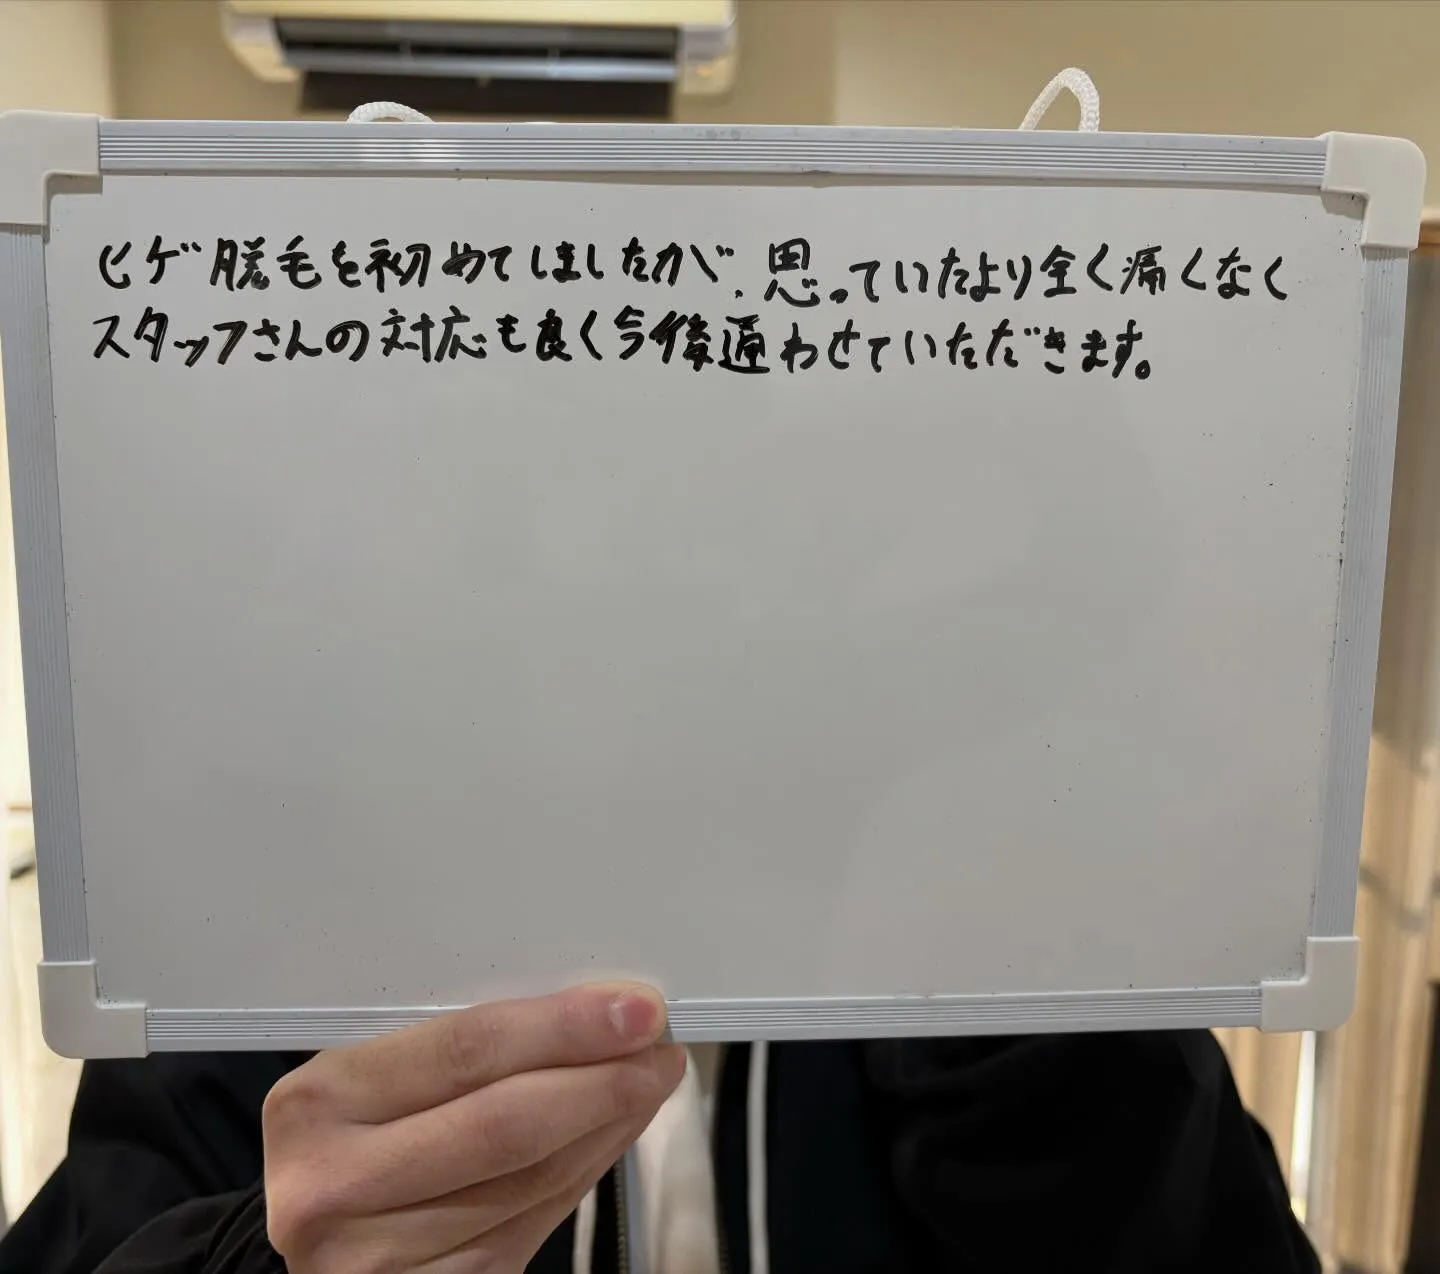 ヒゲ脱毛を初めてしましたが、思っていたより全く痛くなく
スタッフさんの対応も良く今後通わせていただきます。